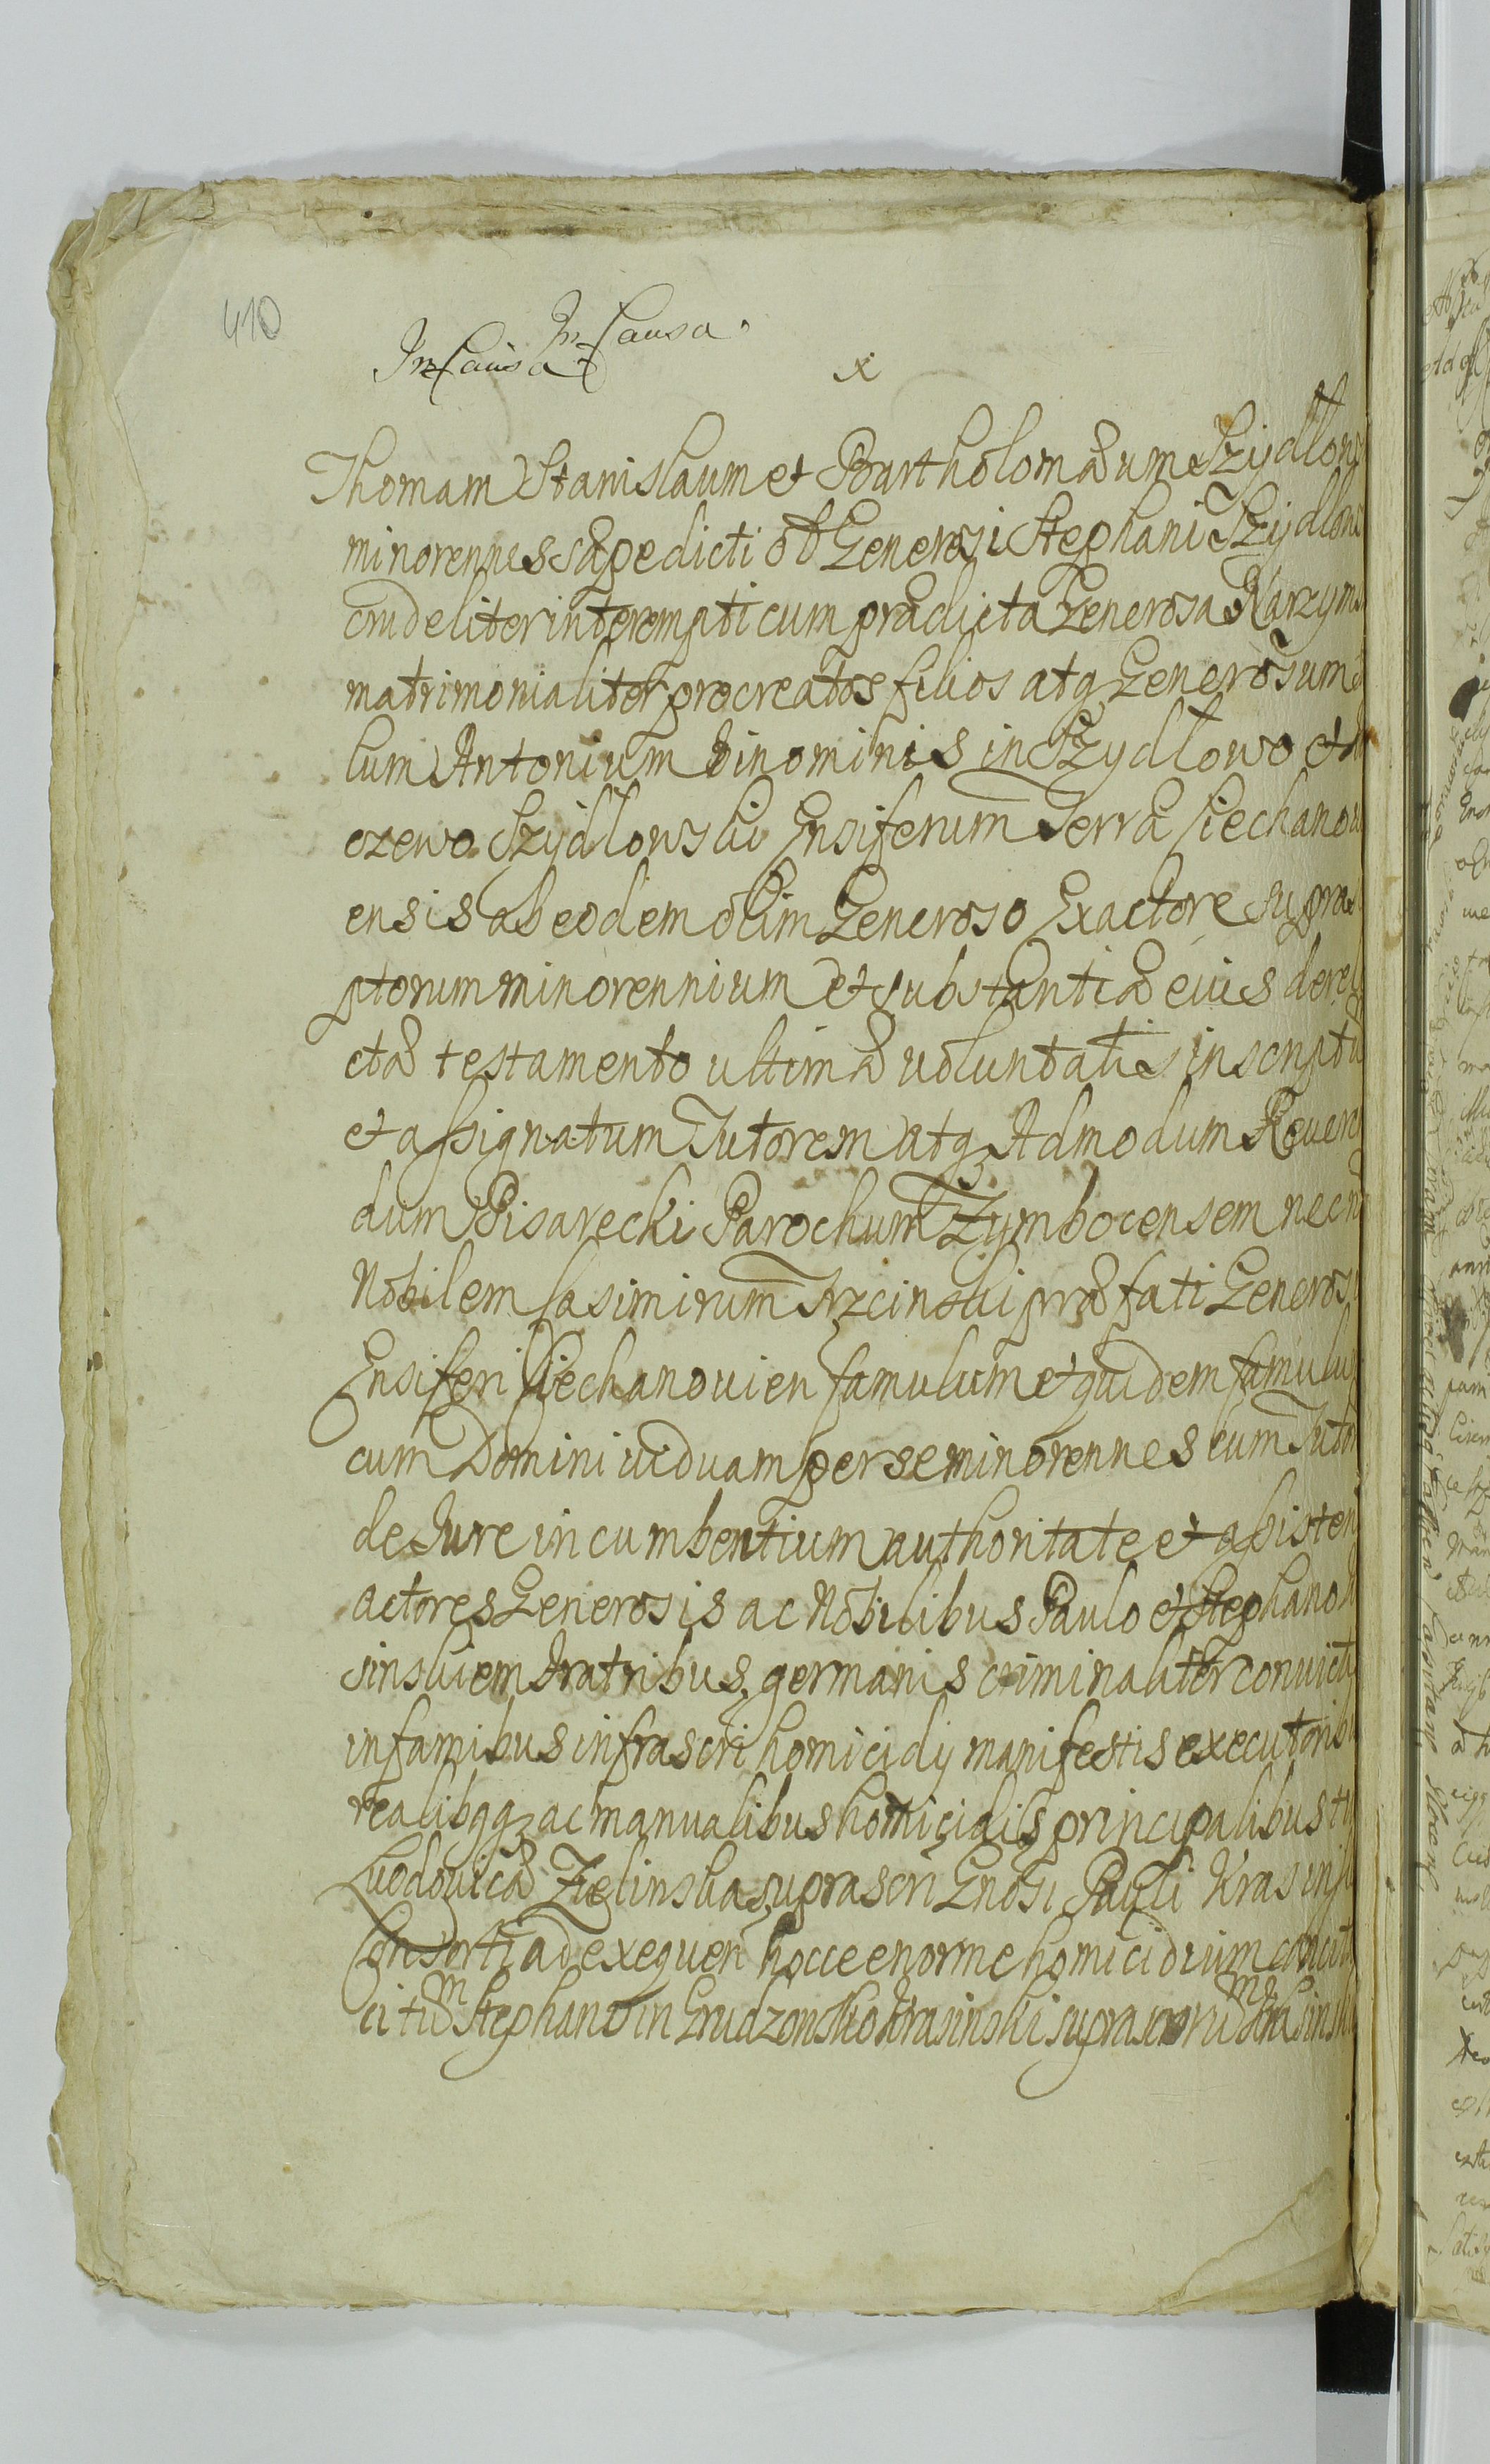 410
In Causa
In Causa
x
Thomam Stanislaum et Bartholomæum Szÿdlows
minorennes sæpedicti ol Generosi Stephani Szÿdlows
crudeliter interempti cum prædicta Generosa Narzyms
matrimonialiter procreatos filios atq Generosum
lum Antonium binominis in Szydlowo et
czewo Szÿdlowski Ensiferum Terræ Ciechanow
ensis ab eodem olim Generoso Exactore supras
ptorum minorennium et substantiæ eius dereli
ctæ testamento ultimæ voluntatis inscriptu
et assignatum Tutorem atq Admodum Reveren
dum Pisarecki Parochum Zymbocensem necn
Nobilem Casimirum Trzcinski præfati Generosi
Ensiferi Ciechanovien famulum et quidem famulu
cum Domini viduam per se minorennes cum Tuto
de Jure incumbentium authoritate et assisten
actores Generosis ac Nobilibus Paulo et Stephano
sinskiem fratribus germanis criminaliter convict
infamibus infrascri homicidÿ manifestis executorib
realibqq ac manualibus homicidis principalibus
Luodovicæ Zielinska suprascri Gnosi Pauli Krasinsk
Consorti ad exequen hocce enorme homicidium
citū Stephano in Grudzonsko Krasinski suprascrorū Krasinsk